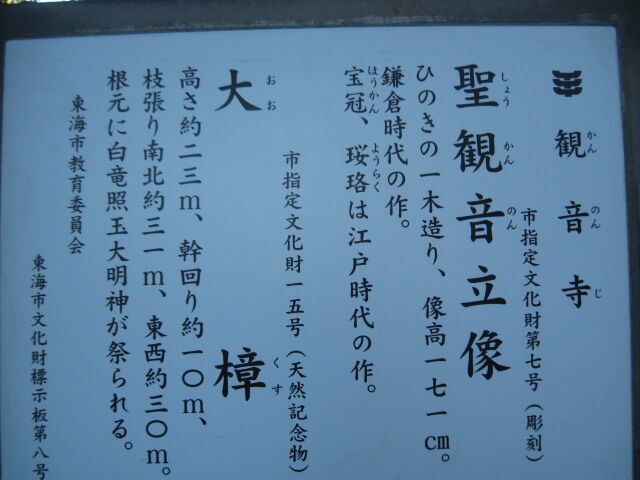 観音寺
市指定文化財第七号（彫刻）
聖観音立像
ひのきの一木造り、像高一七一cm。
鎌倉時代の作。
宝冠、珱珞は江戸時代の作。
市指定文化財一五号（天然記念物）
大樟
高さ約二三m、幹回り約一〇m、
枝張り南北約三一m、東西約三〇m。
根元に白竜照玉大明神が祭られる。
東海市教育委員会
東海市文化財標示板第八号